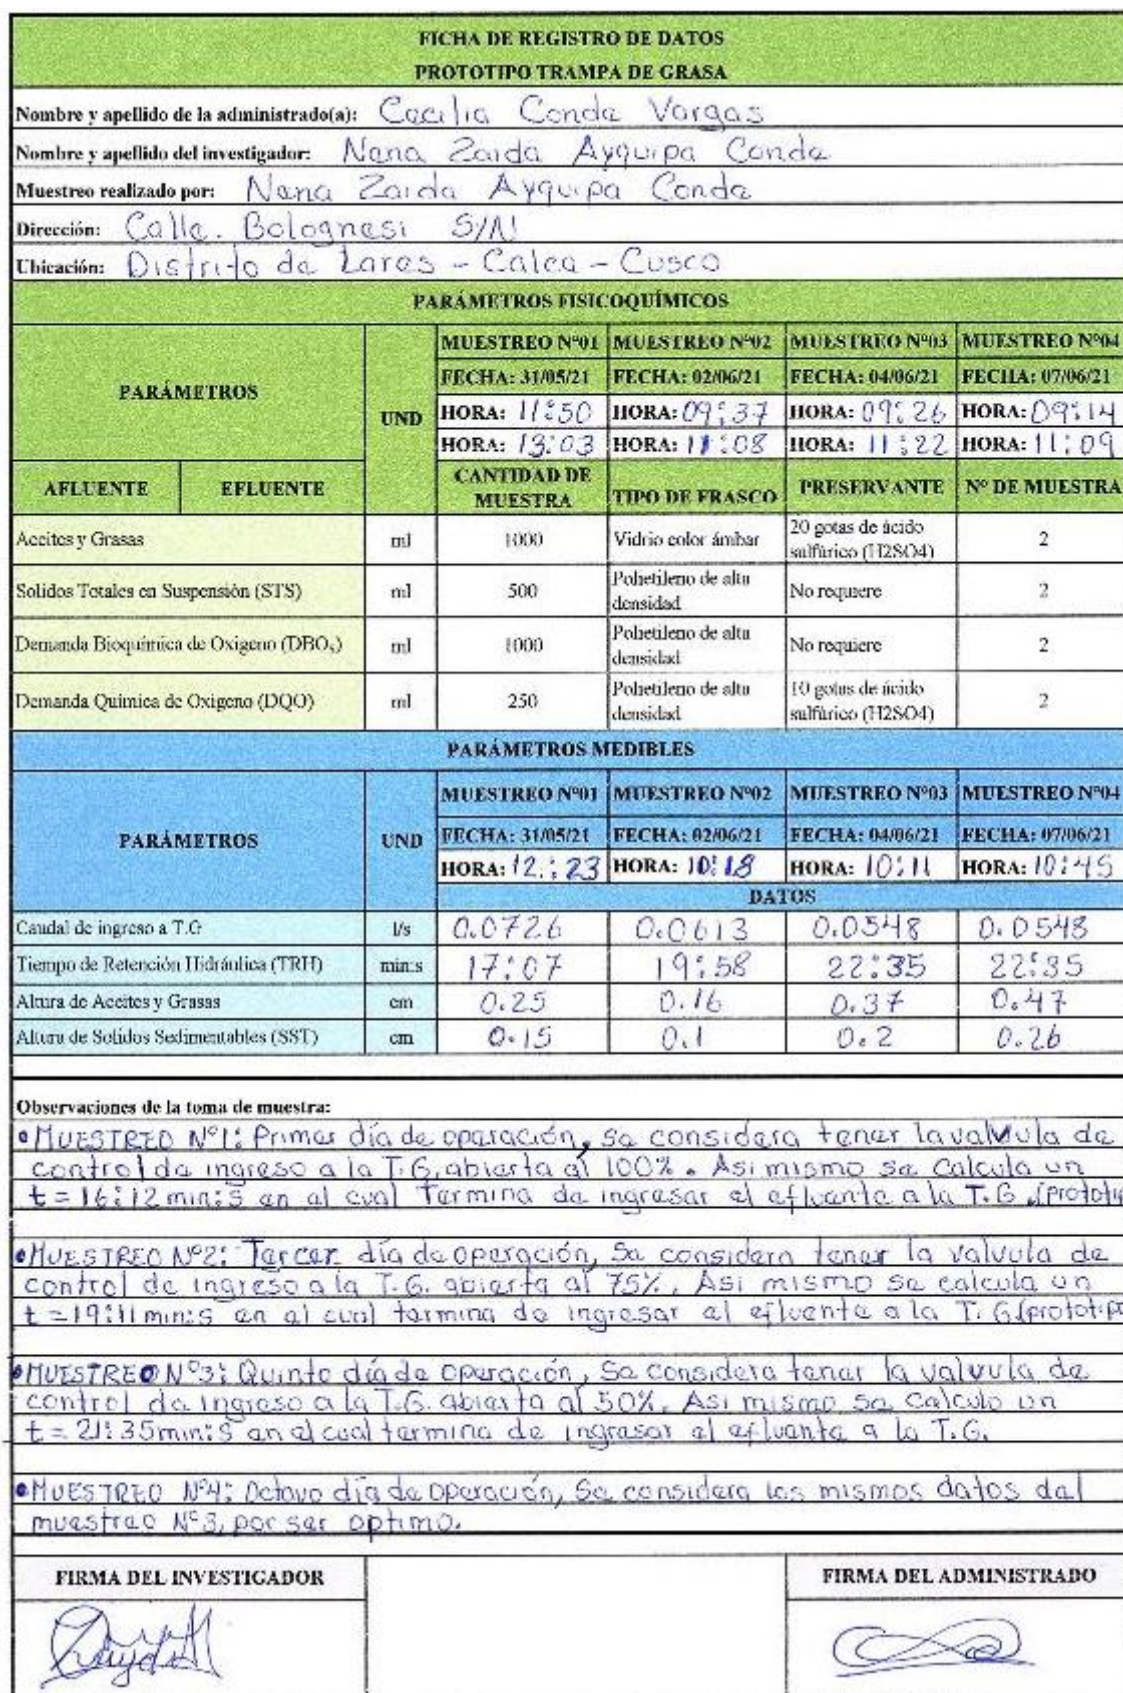 FICHA DE REGISTRO DE DATOS
PROTOTIPO TRAMPA DE GRASA
Nombre y apellido de la administrado(a): Cecilia Conde Vargas
Nombre y apellido del investigador: Nena Zaida Ayquipa Conde
Muestreo realizado por: Nena Zaida Ayquipa Conde
Dirección: Calle. Bolognesi S/N
Ubicación: Distrito de Lares - Calca - Cusco
PARÁMETROS FISICOQUÍMICOS
PARÁMETROS UND MUESTREO Nº01 MUESTREO Nº02 MUESTREO Nº03 MUESTREO Nº04
FECHA: 31/05/21 FECHA: 02/06/21 FECHA: 04/06/21 FECHA: 07/06/21
HORA: 11:50 HORA: 09:37 HORA: 09:26 HORA: 09:14
HORA: 13:03 HORA: 11:08 HORA: 11:22 HORA: 11:09
AFLUENTE EFLUENTE CANTIDAD DE MUESTRA TIPO DE FRASCO PRESERVANTE Nº DE MUESTRA
Aceites y Grasas ml 1000 Vidrio color ámbar 20 gotas de ácido sulfúrico (H2SO4) 2
Solidos Totales en Suspensión (STS) ml 500 Polietileno de alta densidad No requiere 2
Demanda Bioquímica de Oxigeno (DBO₅) ml 1000 Polietileno de alta densidad No requiere 2
Demanda Química de Oxigeno (DQO) ml 250 Polietileno de alta densidad 10 gotas de ácido sulfúrico (H2SO4) 2
PARÁMETROS MEDIBLES
PARÁMETROS UND MUESTREO Nº01 MUESTREO Nº02 MUESTREO Nº03 MUESTREO Nº04
FECHA: 31/05/21 FECHA: 02/06/21 FECHA: 04/06/21 FECHA: 07/06/21
HORA: 12:23 HORA: 10:18 HORA: 10:11 HORA: 10:45
DATOS
Caudal de ingreso a T.G l/s 0.0726 0.0613 0.0548 0.0548
Tiempo de Retención Hidráulica (TRH) min:s 17:07 19:58 22:35 22:35
Altura de Aceites y Grasas cm 0.25 0.16 0.37 0.47
Altura de Solidos Sedimentables (SST) cm 0.15 0.1 0.2 0.26
Observaciones de la toma de muestra:
• MUESTREO Nº1: Primer día de operación, se considera tener la valvula de
control de ingreso a la T.G. abierta al 100%. Asi mismo se calcula un
t = 16:12 min:s en el cual Termina de ingresar el efluente a la T.G. (prototip
• MUESTREO Nº2: Tercer día de operación, Se considera tener la valvula de
control de ingreso a la T.G. abierta al 75%. Asi mismo se calcula un
t = 19:11 min:s en el cual termina de ingresar el efluente a la T.G (prototipo
• MUESTREO Nº3: Quinto día de operación, Se considera tener la valvula de
control de ingreso a la T.G. abierta al 50%. Asi mismo se calculo un
t = 21:35 min:s en el cual termina de ingresar el efluente a la T.G.
• MUESTREO Nº4: Octavo día de operación, Se considera los mismos datos del
muestreo Nº3, por ser optimo.
FIRMA DEL INVESTIGADOR FIRMA DEL ADMINISTRADO